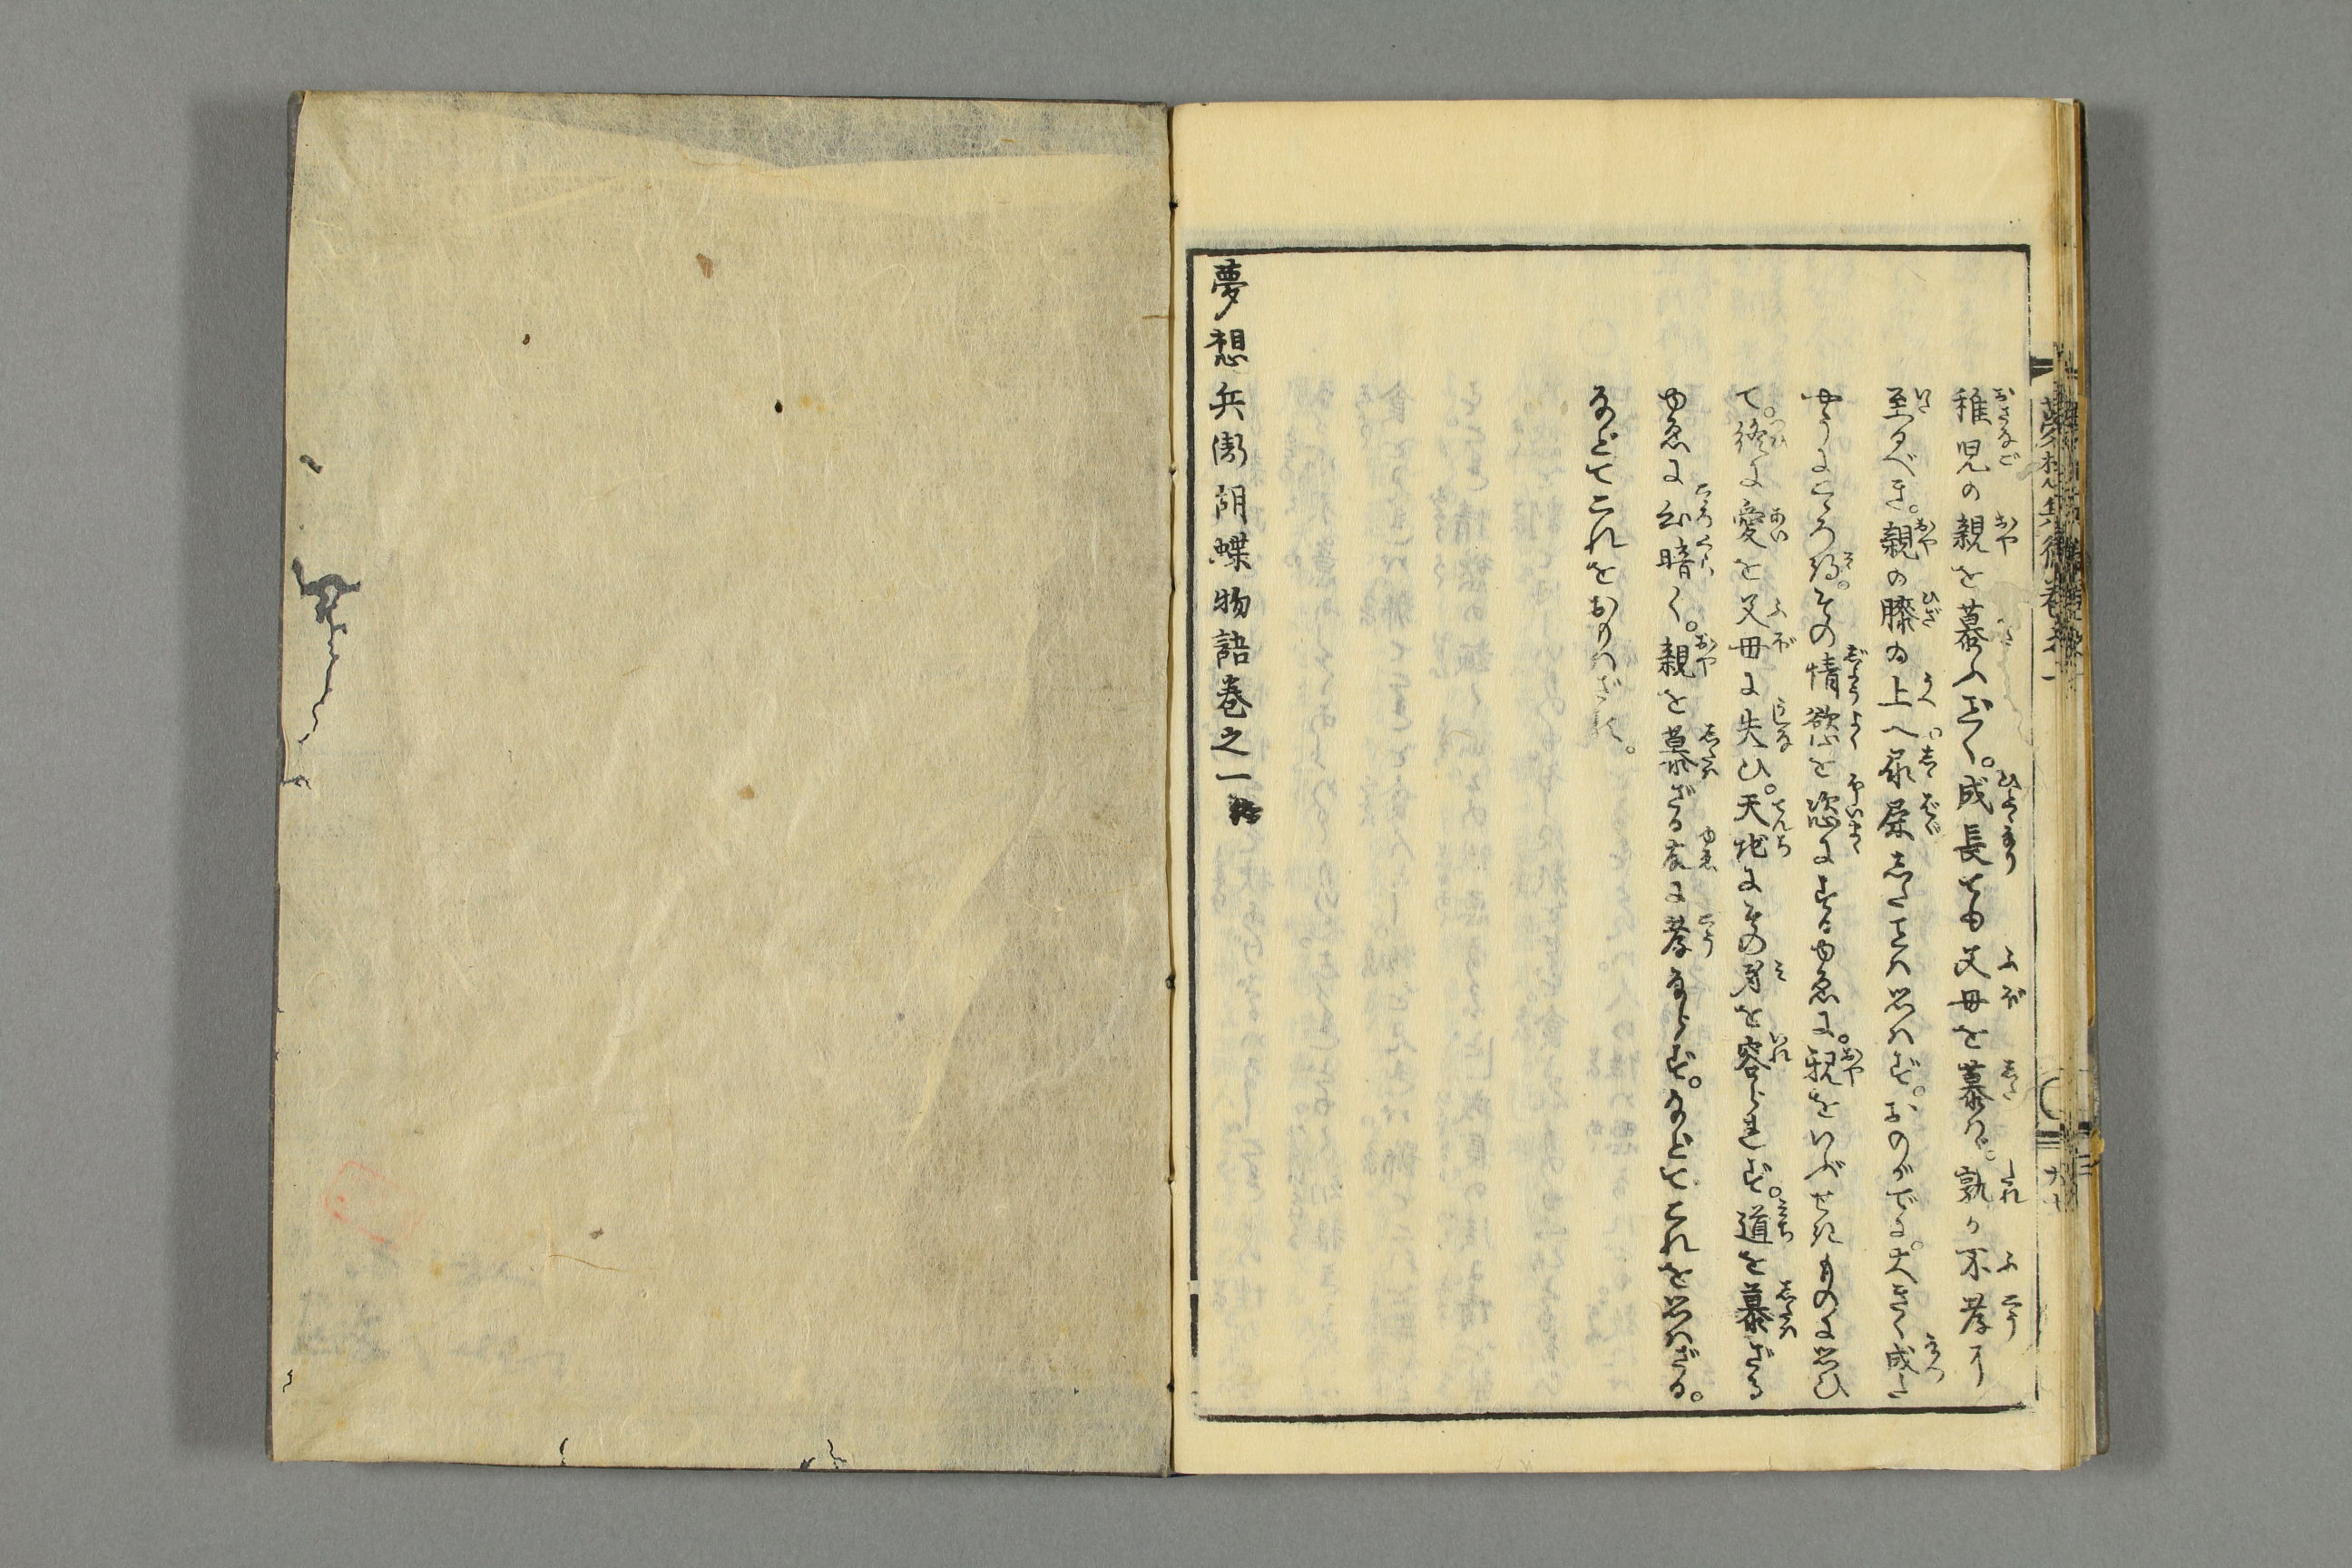 稚児の親を慕ふごとく。成長ても父母を慕はゞ。孰か不孝に
至るべき。親の膝の上へ尿屎したことは思はず。おのがでに。大きく成た
やうにこゝろ得。その情慾を恣にするゆゑに。親をいぶせきものに思ひ
て。終に愛を父母に失ひ。天地にその身を容られず。道を慕ざる
ゆゑに心暗く。親を慕ざる故に孝ならず。などてこれを思はざる。
などてこれをおもはざる。
夢想兵衛胡蝶物語巻之一終